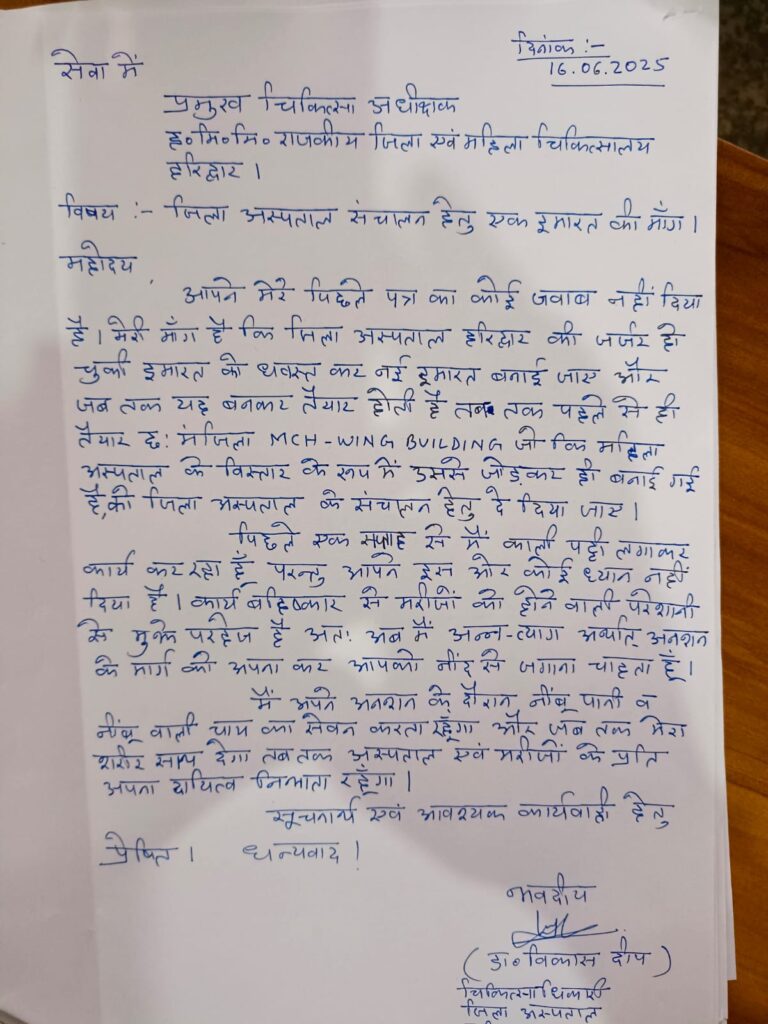 दिनांक :-
16.06.2025
सेवा में
प्रमुख चिकित्सा अधीक्षक
ह॰ मि॰ मि॰ राजकीय जिला एवं महिला चिकित्सालय
हरिद्वार ।
विषय :- जिला अस्पताल संचालन हेतु एक इमारत की माँग ।
महोदय,
आपने मेरे पिछले पत्र का कोई जवाब नहीं दिया
है । मेरी माँग है कि जिला अस्पताल हरिद्वार की जर्जर हो
चुकी इमारत को ध्वस्त कर नई इमारत बनाई जाए और
जब तक यह बनकर तैयार होती है तब तक पहले से ही
तैयार छः मंजिला MCH-WING BUILDING जो कि महिला
अस्पताल के विस्तार के रूप में उससे जोड़कर ही बनाई गई
है, को जिला अस्पताल के संचालन हेतु दे दिया जाए ।
पिछले एक सप्ताह से मैं काली पट्टी लगाकर
कार्य कर रहा हूँ परन्तु आपने इस ओर कोई ध्यान नहीं
दिया है । कार्य बहिष्कार से मरीजों को होने वाली परेशानी
से मुझे परहेज है अतः अब मैं अन्न-त्याग अर्थात् अनशन
के मार्ग को अपना कर आपको नींद से जगाना चाहता हूँ ।
मैं अपने अनशन के दौरान नींबू पानी व
नींबू वाली चाय का सेवन करता रहूँगा और जब तक मेरा
शरीर साथ देगा तब तक अस्पताल एवं मरीजों के प्रति
अपना दायित्व निभाता रहूँगा ।
सूचनार्थ एवं आवश्यक कार्यवाही हेतु
प्रेषित । धन्यवाद ।
भवदीय
( डा॰ विकास दीप )
चिकित्साधिकारी
जिला अस्पताल